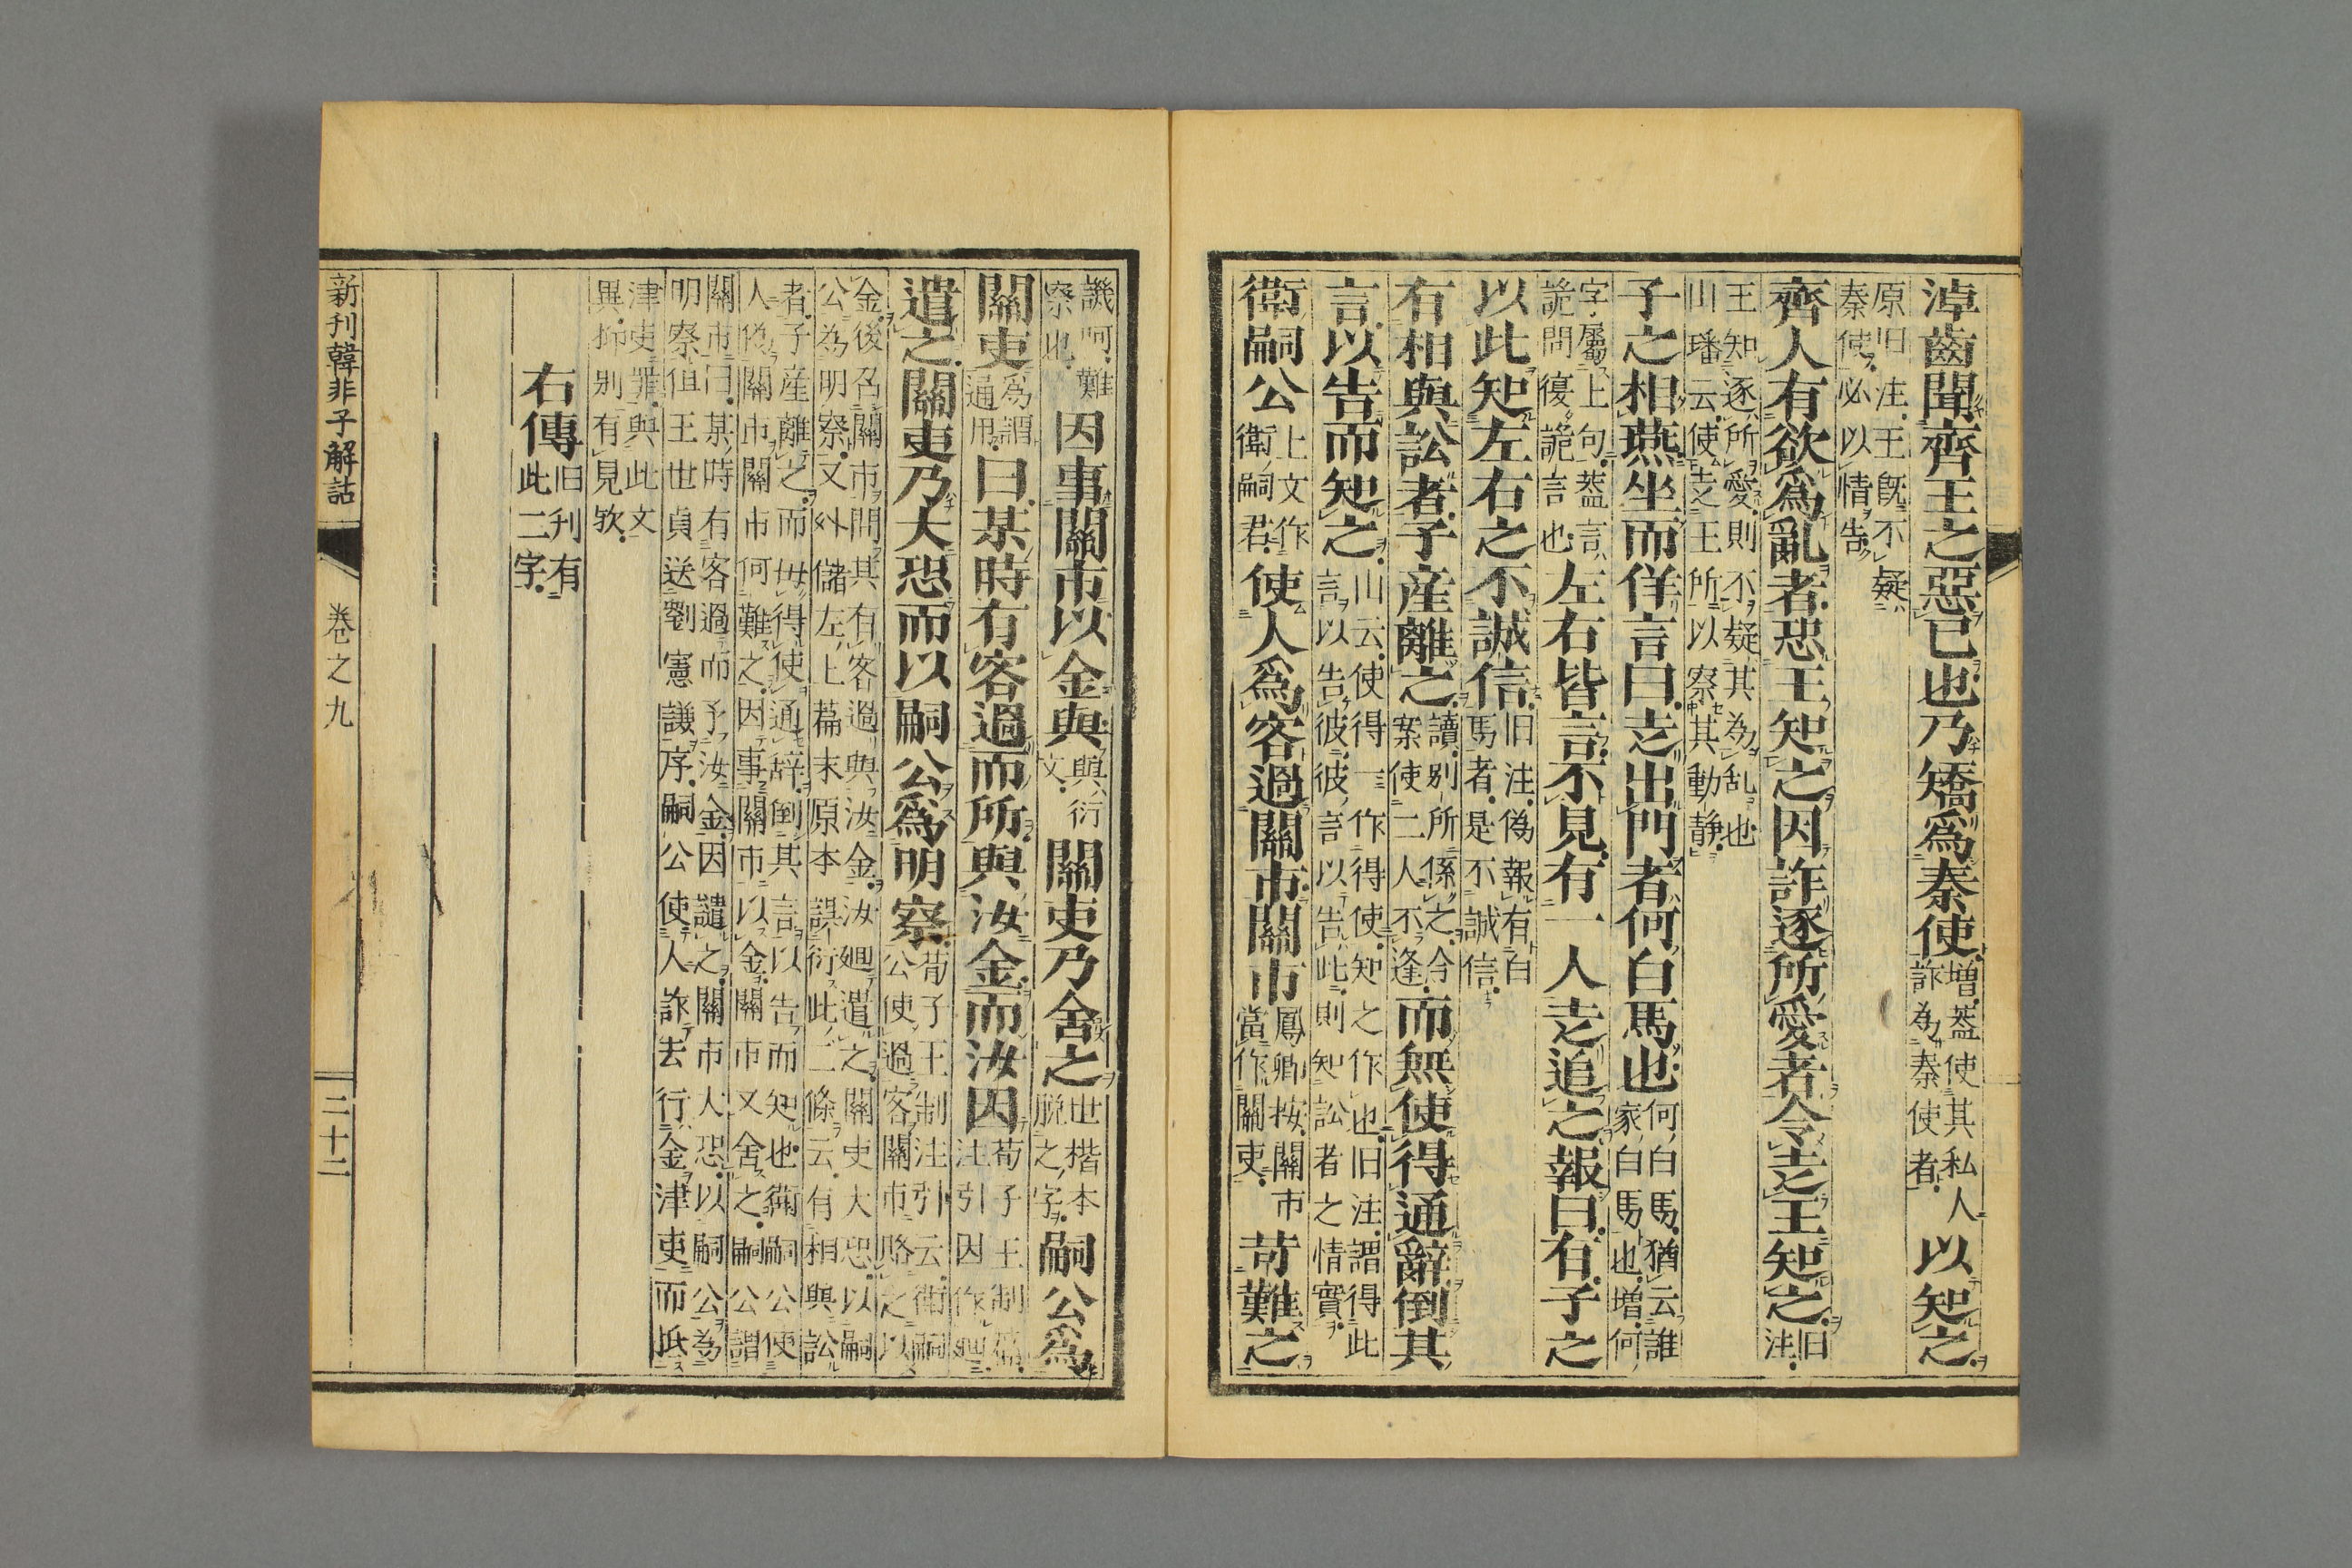 淖齒聞齊王之惡已也乃矯爲秦使増蓋使其私人詐為秦使者以知之
原旧注王既不疑秦使必以情告
齊人有欲爲亂者恐王知之因詐逐所愛者令走王知之旧注
王知逐所愛則不疑其為乱也山璠云使走王所以察其動静
子之相燕坐而佯言曰走出門者何白馬也何白馬猶云誰家白馬也増何
字屬上句蓋言詭問復詭言也左右皆言不見有一人走追之報曰有子之
以此知左右之不誠信旧注偽報有白馬者是不誠信
有相與訟者子産離之讀別所係之令案使二人不逢而無使得通辭倒其
言以告而知之山云使得一作得使知之作也旧注謂得此言以告彼彼言以告此則知訟者之情實
衛嗣公上文作衛嗣君使人爲客過關市關市鳳卿按關市當作關吏苛難之
譏呵難察也因事關市以金與與衍文關吏乃舍之世楷本脱之字嗣公爲
關吏為謂通用曰某時有客過而所與汝金而汝因荀子王制注引因作廻
遣之關吏乃大恐而以嗣公爲明察荀子王制注引云衛嗣公使過客關市賂之以
金後召關市問其有客過與汝金汝廻遣之關吏大恐以嗣公為明察又外儲左上篇末原本誤衍此二條云有相與訟
者子産離之而毋得使通辞倒其言以告而知也衛嗣公使人偽關市關市何難之因事關市以金關市又舍之嗣公謂
關市曰某時有客過而予汝金因譴之關市大恐以嗣公為明察但王世貞送劉憲議序嗣公使人詐去行金津吏而坻
津吏罪與此文異抑别有見欤
右傳旧刊有此二字
新刊韓非子解詁
卷之九
二十二